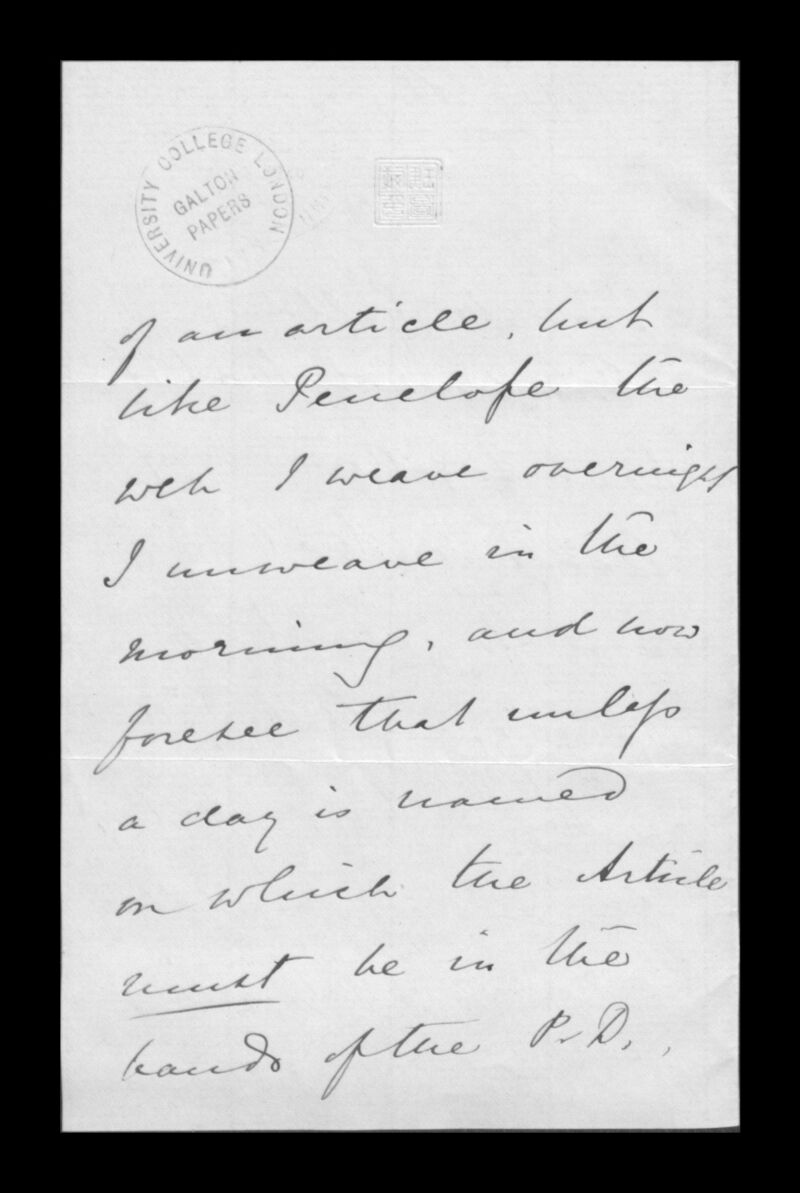 UNIVERSITY COLLEGE LONDON
GALTON
PAPERS
of an article, but
like Penelope the
web I weave overnight
I unweave in the
morning, and now
foresee that unless
a day is named
on which the Article
must be in the
hands of the P. D.,